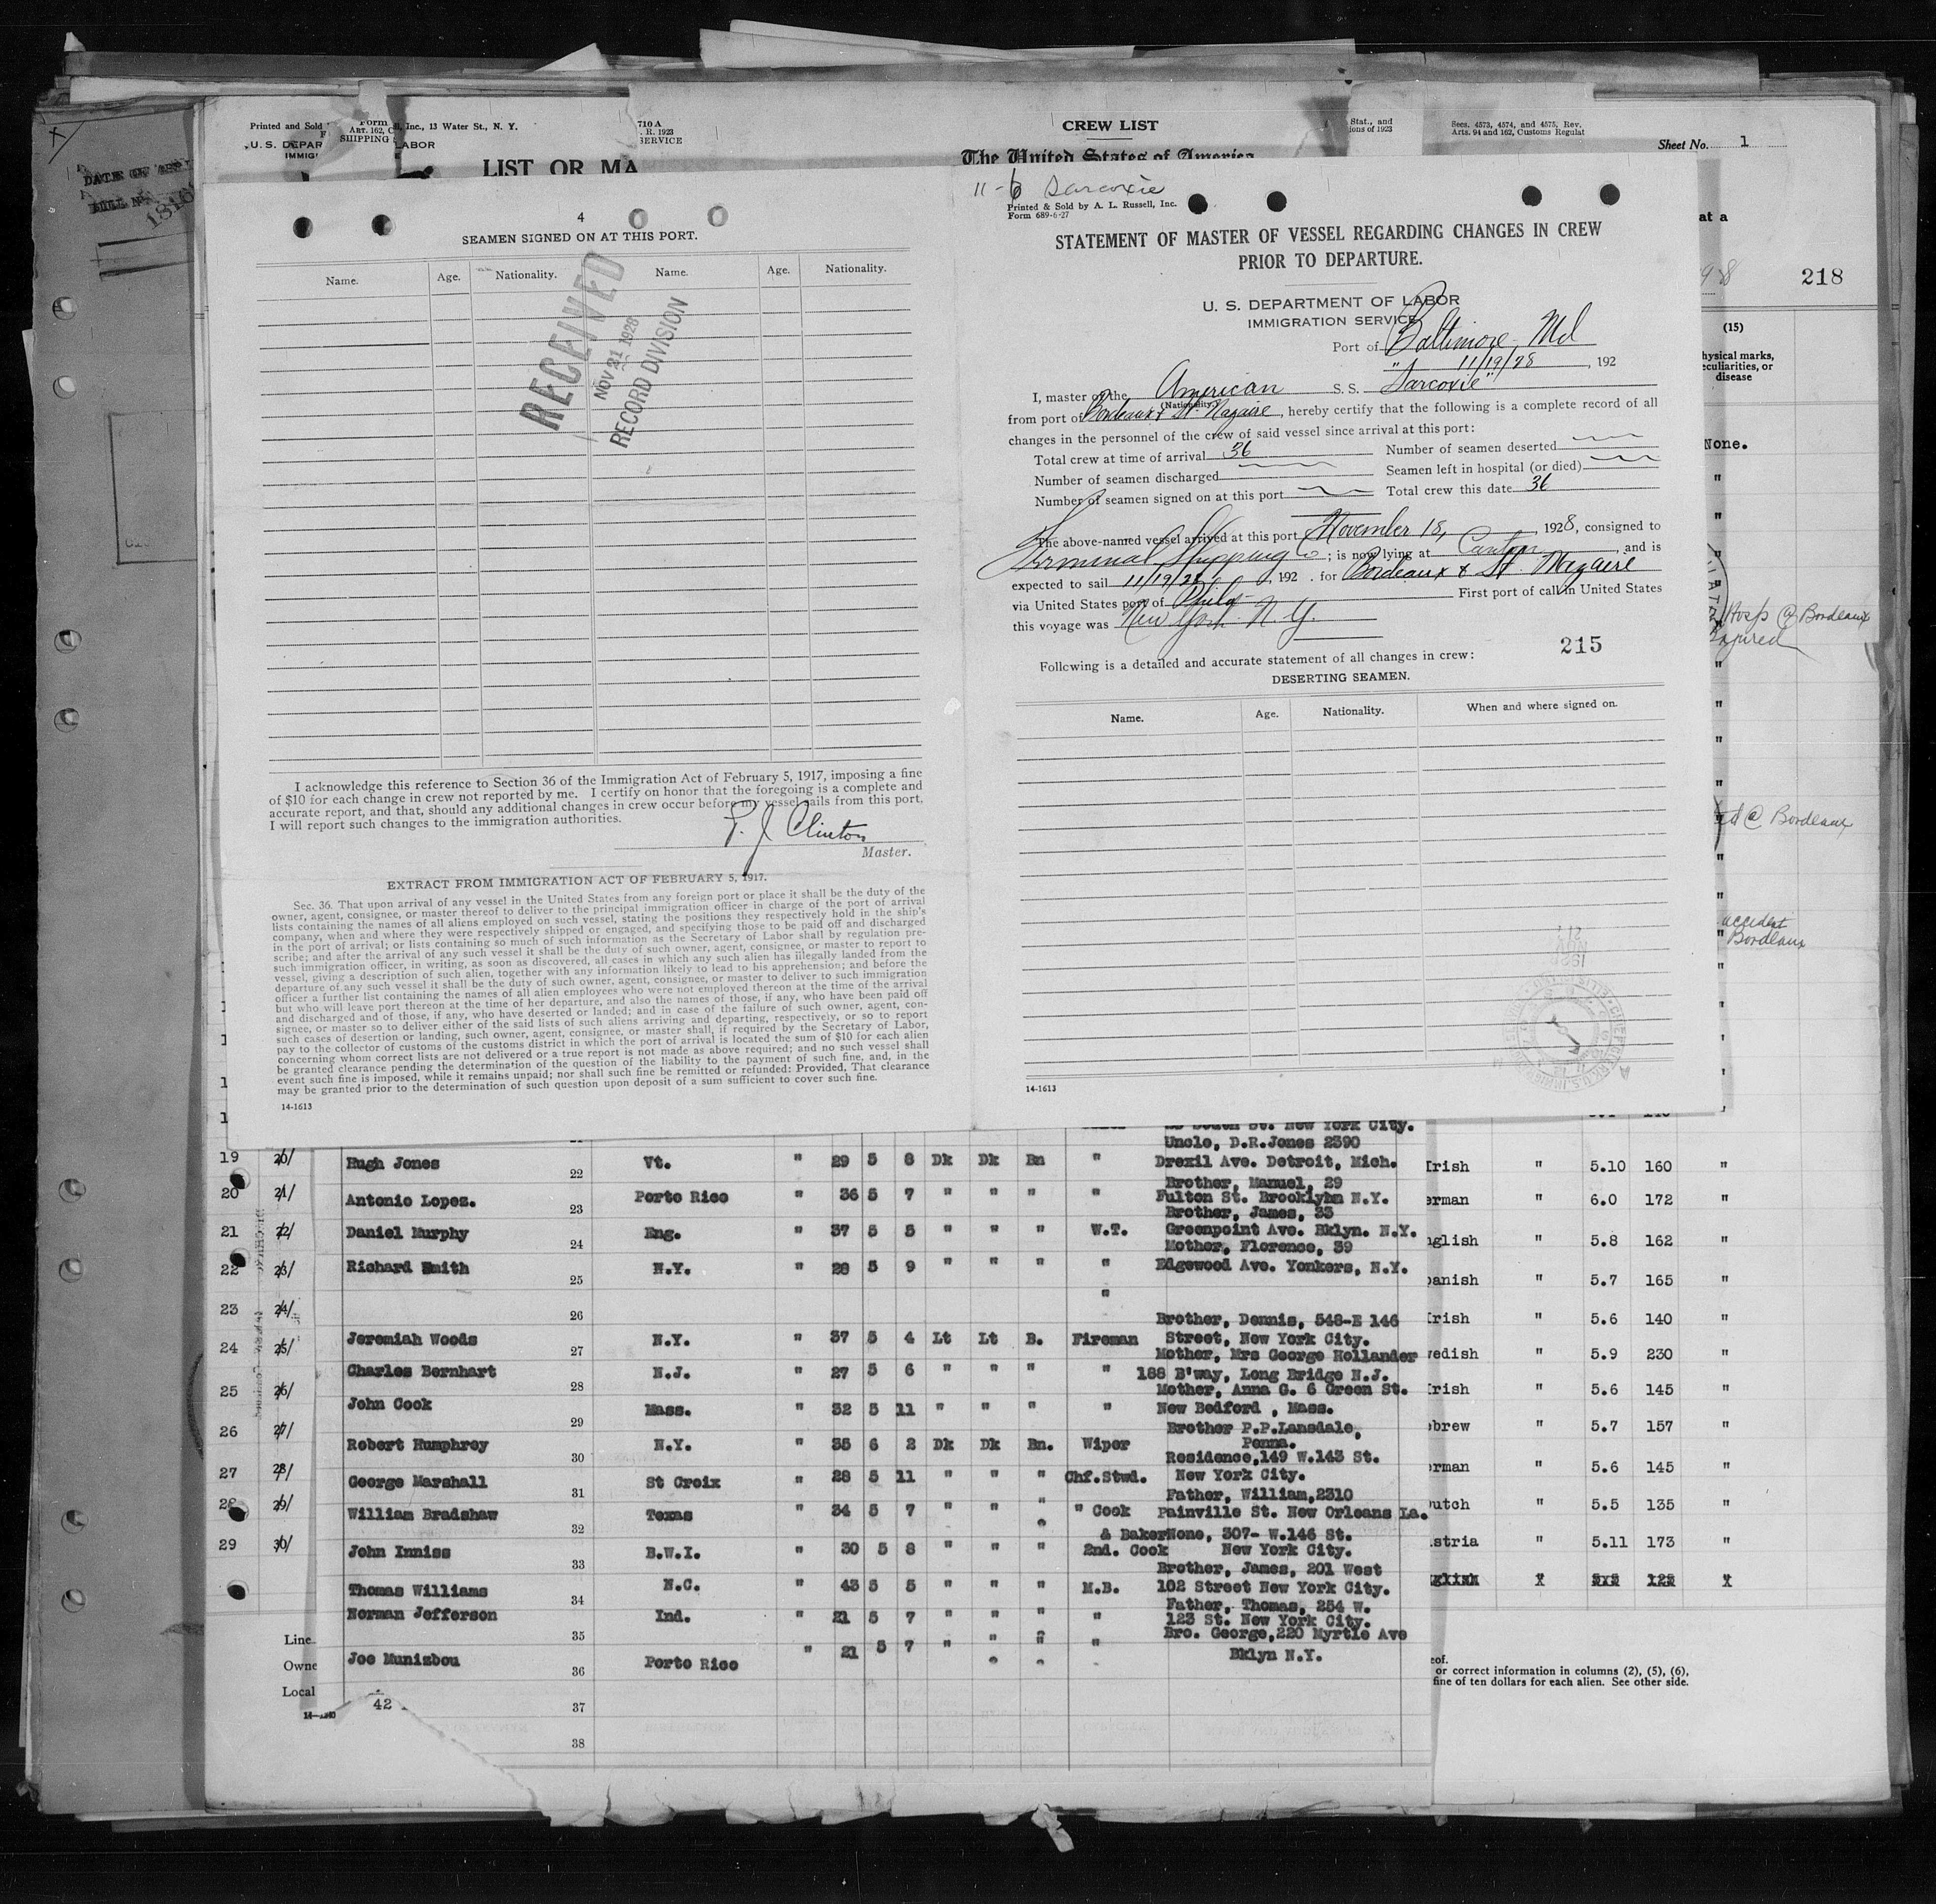 DATE OF
BILL No.
Printed and Sold
Inc., 13 Water St., N. Y.
U. S. DEPAR
LABOR
Form
ART. 162, C
SHIPPING
710 A
R. 1923
SERVICE
LIST OR MA
CREW LIST
The United States of America
Stat., and
ions of 1923
Secs. 4573, 4574, and 4575, Rev.
Arts. 94 and 162, Customs Regulat
Sheet No. 1
at a
218
(15)
hysical marks,
eculiarities, or
disease
None.
Hosp @ Bordeaux
Injured
@ Bordeaux
accident
Bordeaux
4
SEAMEN SIGNED ON AT THIS PORT.
Name. Age. Nationality. Name. Age. Nationality.
RECEIVED
NOV 21 1928
RECORD DIVISION
I acknowledge this reference to Section 36 of the Immigration Act of February 5, 1917, imposing a fine
of $10 for each change in crew not reported by me. I certify on honor that the foregoing is a complete and
accurate report, and that, should any additional changes in crew occur before my vessel sails from this port,
I will report such changes to the immigration authorities.
Clinton
Master.
EXTRACT FROM IMMIGRATION ACT OF FEBRUARY 5, 1917.
Sec. 36. That upon arrival of any vessel in the United States from any foreign port or place it shall be the duty of the
owner, agent, consignee, or master thereof to deliver to the principal immigration officer in charge of the port of arrival
lists containing the names of all aliens employed on such vessel, stating the positions they respectively hold in the ship's
company, when and where they were respectively shipped or engaged, and specifying those to be paid off and discharged
in the port of arrival; or lists containing so much of such information as the Secretary of Labor shall by regulation pre-
scribe; and after the arrival of any such vessel it shall be the duty of such owner, agent, consignee, or master to report to
such immigration officer, in writing, as soon as discovered, all cases in which any such alien has illegally landed from the
vessel, giving a description of such alien, together with any information likely to lead to his apprehension; and before the
departure of any such vessel it shall be the duty of such owner, agent, consignee, or master to deliver to such immigration
officer a further list containing the names of all alien employees who were not employed thereon at the time of the arrival
but who will leave port thereon at the time of her departure, and also the names of those, if any, who have been paid off
and discharged and of those, if any, who have deserted or landed; and in case of the failure of such owner, agent, con-
signee, or master so to deliver either of the said lists of such aliens arriving and departing, respectively, or so to report
such cases of desertion or landing, such owner, agent, consignee, or master shall, if required by the Secretary of Labor,
pay to the collector of customs of the customs district in which the port of arrival is located the sum of $10 for each alien
concerning whom correct lists are not delivered or a true report is not made as above required; and no such vessel shall
be granted clearance pending the determination of the question of the liability to the payment of such fine, and, in the
event such fine is imposed, while it remains unpaid; nor shall such fine be remitted or refunded: Provided, That clearance
may be granted prior to the determination of such question upon deposit of a sum sufficient to cover such fine.
14-1613
11-6 Sarcoxie
Printed & Sold by A. L. Russell, Inc.
Form 689-6-27
STATEMENT OF MASTER OF VESSEL REGARDING CHANGES IN CREW
PRIOR TO DEPARTURE.
U. S. DEPARTMENT OF LABOR
IMMIGRATION SERVICE
Port of Baltimore Md
11/19/28, 192
I, master of the American S. S. "Sarcoxie"
(Nationality.)
from port of Bordeaux & St. Nazaire, hereby certify that the following is a complete record of all
changes in the personnel of the crew of said vessel since arrival at this port:
Total crew at time of arrival 36 Number of seamen deserted
Number of seamen discharged Seamen left in hospital (or died)
Number of seamen signed on at this port Total crew this date 36
The above-named vessel arrived at this port November 18, 1928, consigned to
Terminal Shipping Co; is now lying at Canton, and is
expected to sail 11/19/28, 192 . for Bordeaux & St. Nazaire
via United States port of Phila First port of call in United States
this voyage was New York N.Y.
215
Following is a detailed and accurate statement of all changes in crew:
DESERTING SEAMEN.
Name. Age. Nationality. When and where signed on.
14-1613
South St. New York City.
Uncle, D.R.Jones 2390
19 20/ Hugh Jones 22 Vt. " 29 5 8 Dk Dk Bn " Drexil Ave. Detroit, Mich. Irish " 5.10 160 "
Brother, Manuel, 29
20 21/ Antonio Lopez. 23 Porto Rico " 36 5 7 " " " " Fulton St. Brooklyhn N.Y. erman " 6.0 172 "
Brother, James, 33
21 22/ Daniel Murphy 24 Eng. " 37 5 5 " " " W.T. Greenpoint Ave. Bklyn. N.Y. nglish " 5.8 162 "
Mother, Florence, 39
22 23/ Richard Smith 25 N.Y. " 28 5 9 " " " " Edgewood Ave. Yonkers, N.Y. panish " 5.7 165 "
"
23 24/ 26 Brother, Dennis, 548-E 146 Irish " 5.6 140 "
24 25/ Jeremiah Woods 27 N.Y. " 37 5 4 Lt Lt B. Fireman Street, New York City.
Mother, Mrs George Hollander wedish " 5.9 230 "
Charles Bernhart 28 N.J. " 27 5 6 " " " " 188 B'way, Long Bridge N.J.
25 26/ Mother, Anna G. 6 Green St. Irish " 5.6 145 "
John Cook 29 Mass. " 32 5 11 " " " " New Bedford , Mass.
26 27/ Brother P.P.Lansdale, ebrew " 5.7 157 "
Robert Humphrey 30 N.Y. " 35 6 2 Dk Dk Bn. Wiper Penna.
27 28/ Residence,149 W.143 St. erman " 5.6 145 "
George Marshall 31 St Croix " 28 5 11 " " " Chf.Stwd. New York City.
28 29/ Father, William,2310 utch " 5.5 135 "
William Bradshaw 32 Texas " 34 5 7 " " " " Cook Painville St. New Orleans La.
29 30/ & Baker None, 307- W.146 St. stria " 5.11 173 "
John Inniss 33 B.W.I. " 30 5 8 " " " 2nd. Cook New York City.
Brother, James, 201 West
Thomas Williams 34 N.C. " 43 5 5 " " " M.B. 102 Street New York City.
Father, Thomas, 254 W.
Norman Jefferson 35 Ind. " 21 5 7 " " " " 123 St. New York City.
Bro. George,220 Myrtle Ave
Joe Munizbou 36 Porto Rico " 21 5 7 " " " " Bklyn N.Y.
Line
Owne
Local
42
37
38
or correct information in columns (2), (5), (6),
fine of ten dollars for each alien. See other side.